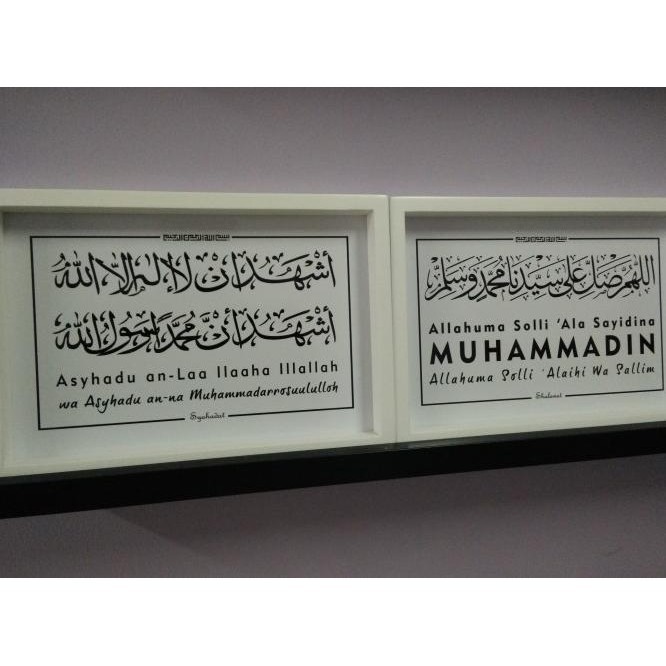 بسم الله الرحمن الرحيم
أَشْهَدُ أَنْ لَا إِلٰهَ إِلَّا اللهُ
أَشْهَدُ أَنَّ مُحَمَّدًا رَسُولُ اللهِ
Asyhadu an-Laa Ilaaha Illallah
wa Asyhadu an-na Muhammadarrosuululloh
Syahadat
بسم الله الرحمن الرحيم
اللَّهُمَّ صَلِّ عَلَى سَيِّدِنَا مُحَمَّدٍ وَسَلِّمْ
Allahuma Solli 'Ala Sayidina
MUHAMMADIN
Allahuma Solli 'Alaihi Wa Sallim
Shalawat